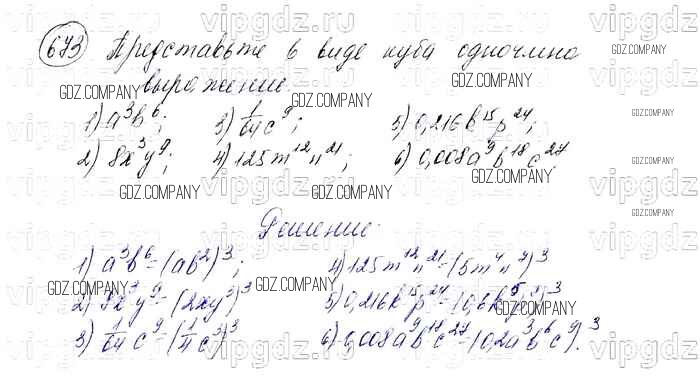 673 Представьте в виде куба одночлена
выражение.
1) a³b⁶; 3) 1/64 c⁹; 5) 0,216k¹⁵p²⁴;
2) 8x³y⁹; 4) 125m¹²n²¹; 6) 0,008a⁹b¹⁸c²⁷
Решение.
1) a³b⁶=(ab²)³; 4) 125m¹²n²¹=(5m⁴n⁷)³
2) 8x³y⁹=(2xy³)³ 5) 0,216k¹⁵p²⁴=(0,6k⁵p⁸)³
3) 1/64 c⁹=(1/4 c³)³ 6) 0,008a⁹b¹⁸c²⁷=(0,2a³b⁶c⁹)³.
vipgdz.ru
GDZ.COMPANY